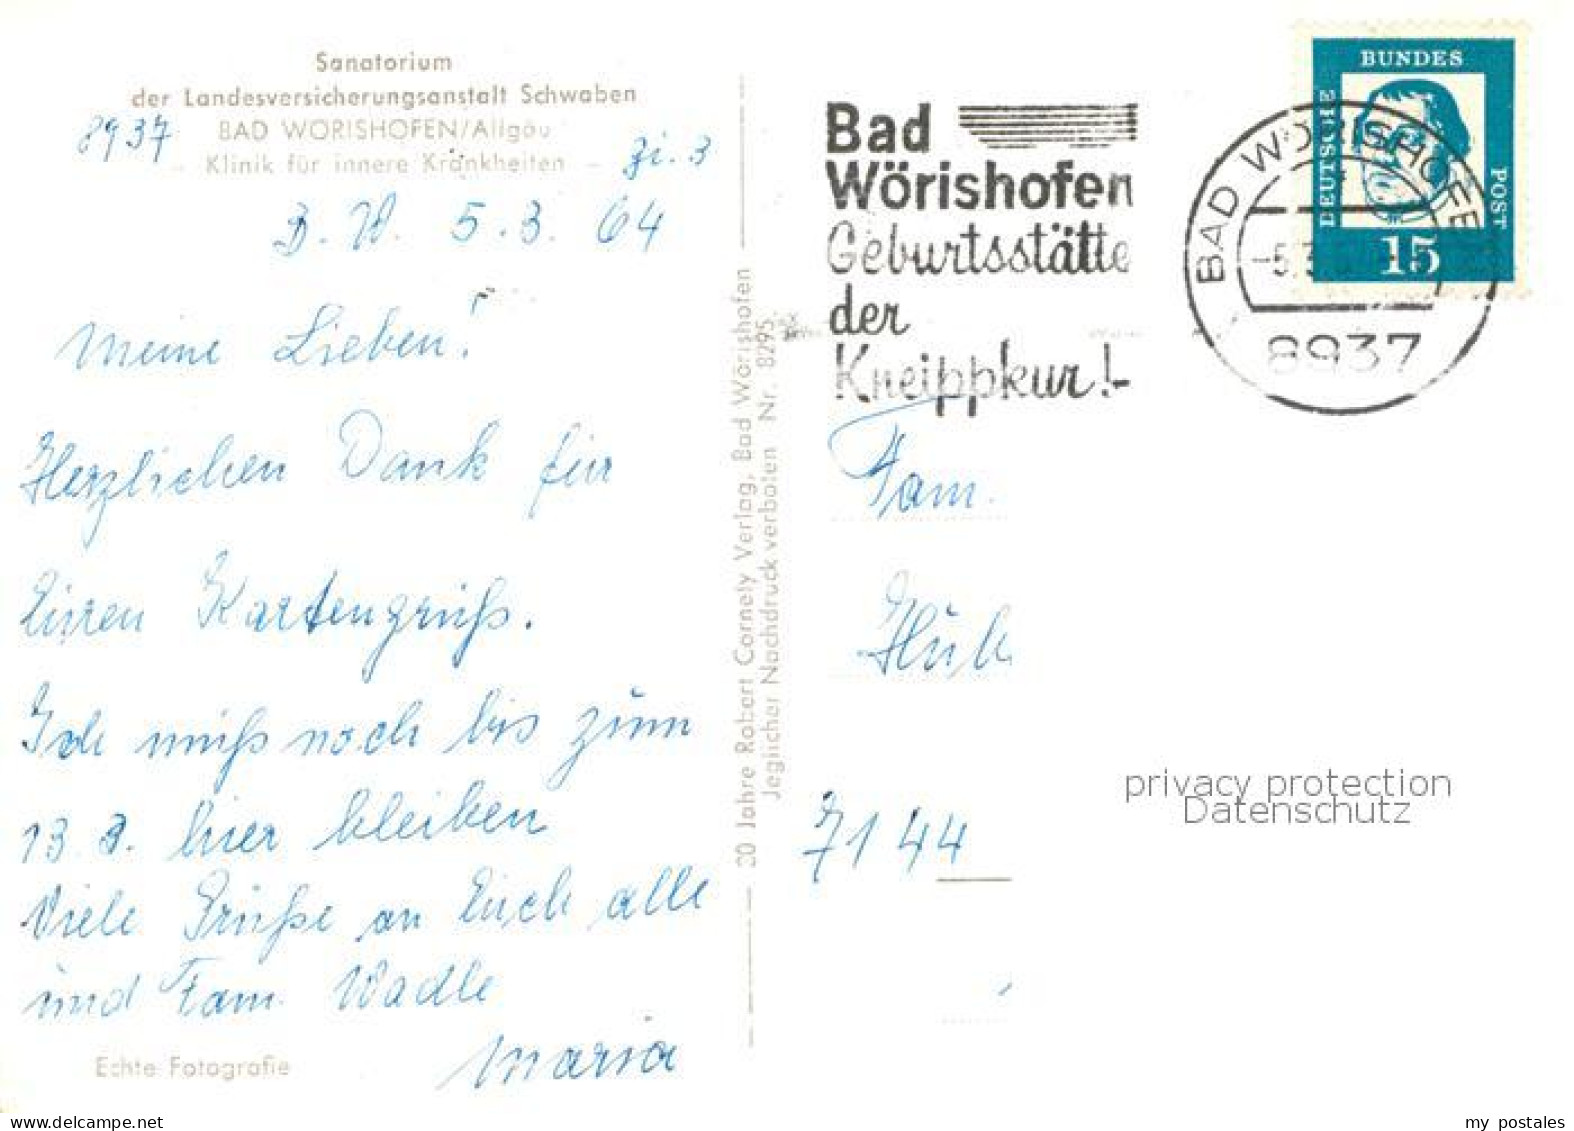 Sanatorium
der Landesversicherungsanstalt Schwaben
8937 BAD WÖRISHOFEN/Allgäu
- Klinik für innere Krankheiten - Zi. 3
B. W. 5. 3. 64
Meine Lieben!
Herzlichen Dank für
Euren Kartengruß.
Ich muß noch bis zum
13. 3. hier bleiben
Viele Grüße an Euch alle
und Fam. Wadle
Maria
Echte Fotografie
30 Jahre Robert Cornely Verlag, Bad Wörishofen
Jeglicher Nachdruck verboten Nr. 8295
Bad
Wörishofen
Geburtsstätte
der
Kneippkur!
BAD WÖRISHOFEN
-5.3.
8937
DEUTSCHE
BUNDES
POST
15
Fam.
Hub
7144
privacy protection
Datenschutz
my postales